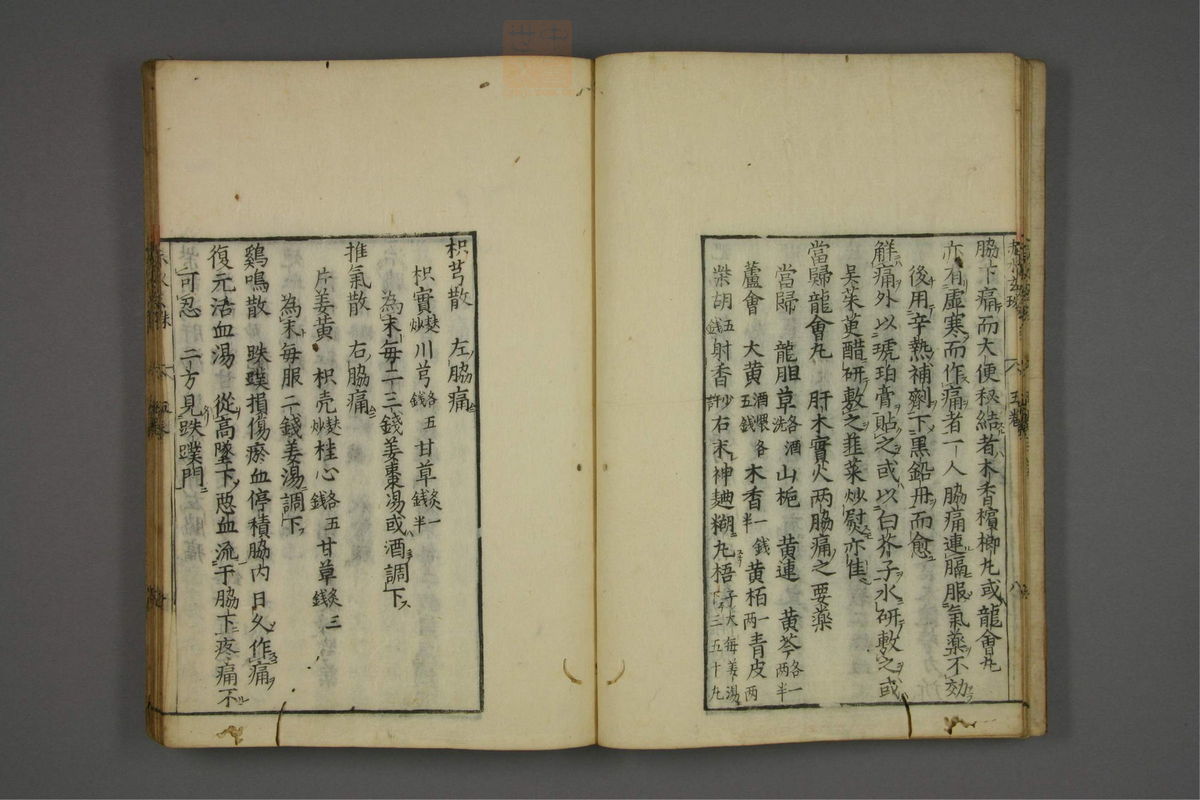 脇下痛而大便秘結者木香檳榔丸或龍會丸
亦有虛寒而作痛者一人脇痛連膈服氣藥不効
後用辛熱補劑下黒鉛丹而愈
解痛外以琥珀膏貼之或以白芥子水研敷之或
吳茱萸醋研敷之韮菜炒熨亦佳
當歸龍會丸 肝木實火两脇痛之要藥
當歸 龍胆草各酒洗 山梔 黄連 黄芩各一两半
蘆會 大黄酒煨各五錢 木香一錢半 黄栢一两 青皮一两
柴胡五錢 射香少許 右末神麯糊丸梧子大每姜湯下三五十丸
枳芎散 左脇痛
枳實麸炒 川芎各五錢 甘草炙一錢半
為末每二三錢姜棗湯或酒調下
推氣散 右脇痛
片姜黄 枳壳麸炒 桂心各五錢 甘草炙三錢
為末每服二錢姜湯調下
鷄鳴散 跌蹼損傷瘀血停積脇內日久作痛
復元活血湯 從高墜下惡血流于脇下疼痛不
可忍 二方見跌蹼門